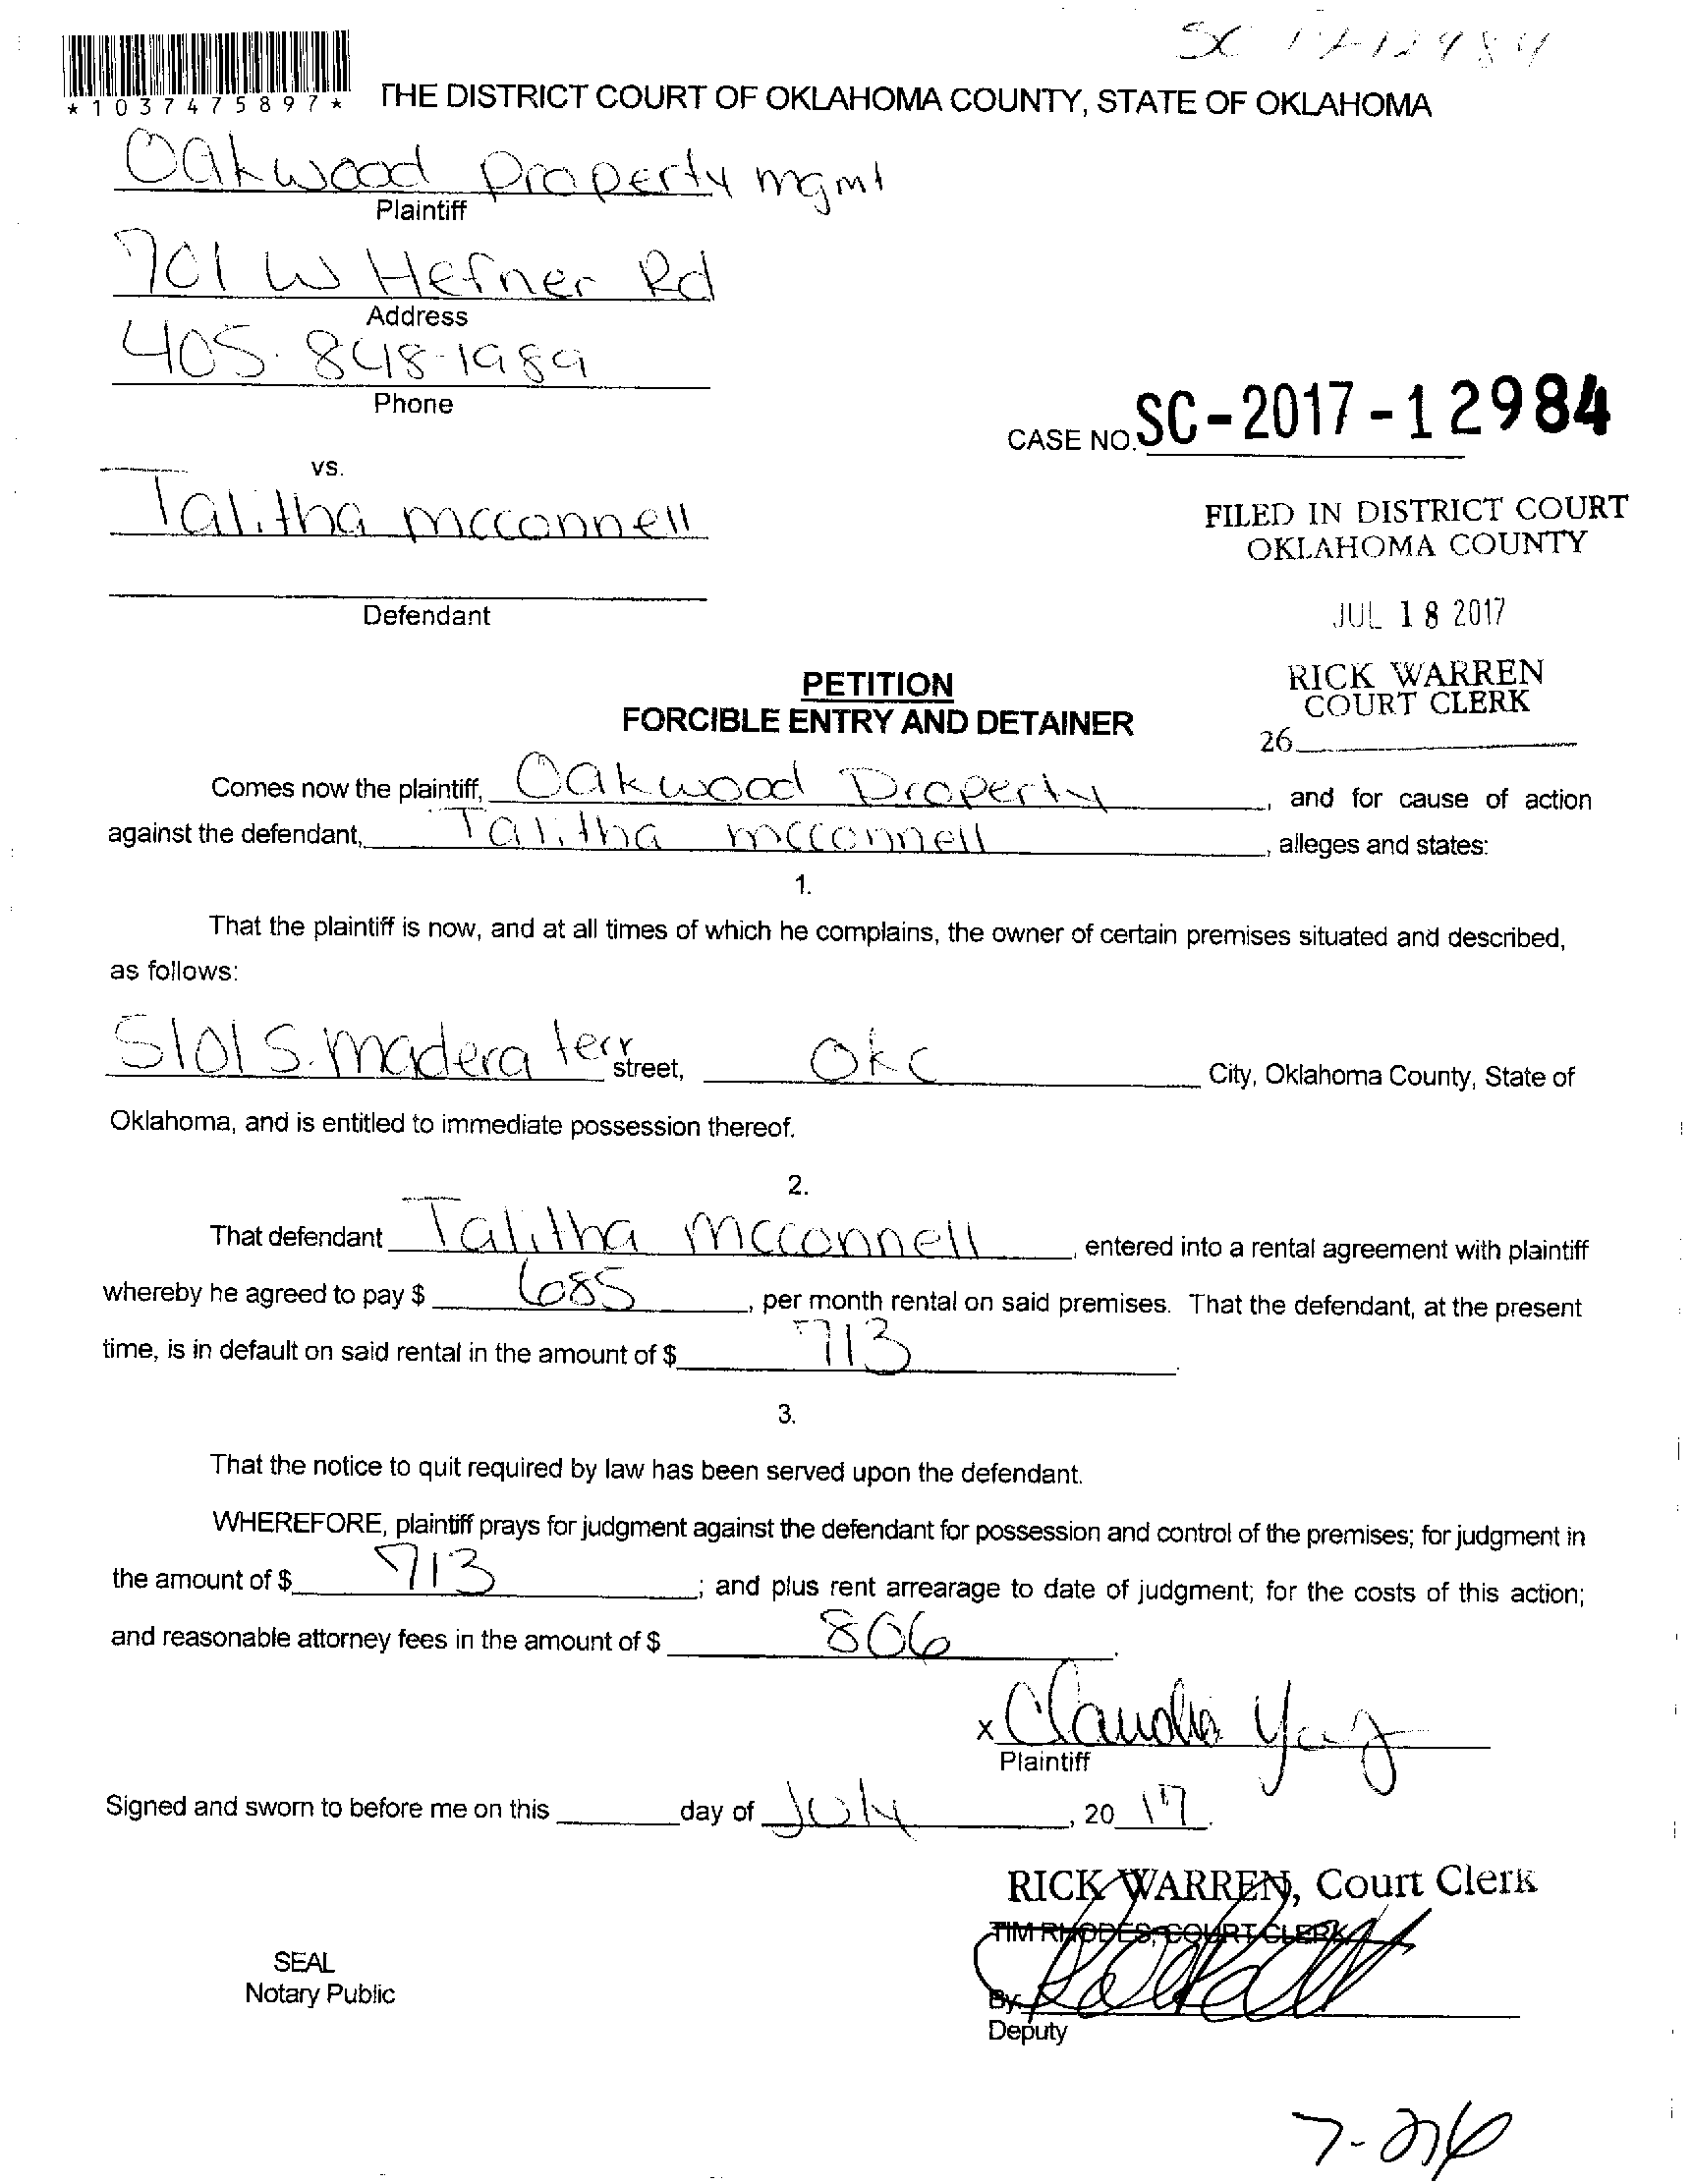 SC 17-12984
*1037475897*
THE DISTRICT COURT OF OKLAHOMA COUNTY, STATE OF OKLAHOMA
Oakwood Property mgmt
Plaintiff
701 W Hefner Rd
Address
405-848-1989
Phone
CASE NO. SC-2017-12984
vs.
Talitha mcconnell
FILED IN DISTRICT COURT
OKLAHOMA COUNTY
Defendant
JUL 18 2017
PETITION
FORCIBLE ENTRY AND DETAINER
RICK WARREN
COURT CLERK
26
Comes now the plaintiff, Oakwood Property, and for cause of action
against the defendant, Talitha mcconnell, alleges and states:
1.
That the plaintiff is now, and at all times of which he complains, the owner of certain premises situated and described,
as follows:
5101 S. madera terr street, OKC City, Oklahoma County, State of
Oklahoma, and is entitled to immediate possession thereof.
2.
That defendant Talitha mcconnell, entered into a rental agreement with plaintiff
whereby he agreed to pay $ 685, per month rental on said premises. That the defendant, at the present
time, is in default on said rental in the amount of $ 713.
3.
That the notice to quit required by law has been served upon the defendant.
WHEREFORE, plaintiff prays for judgment against the defendant for possession and control of the premises; for judgment in
the amount of $ 713; and plus rent arrearage to date of judgment; for the costs of this action;
and reasonable attorney fees in the amount of $ 806.
x Claudia
Plaintiff
Signed and sworn to before me on this day of July, 20 17.
RICK WARREN, Court Clerk
TIM RHODES, COURT CLERK
SEAL
Notary Public
By
Deputy
7-26